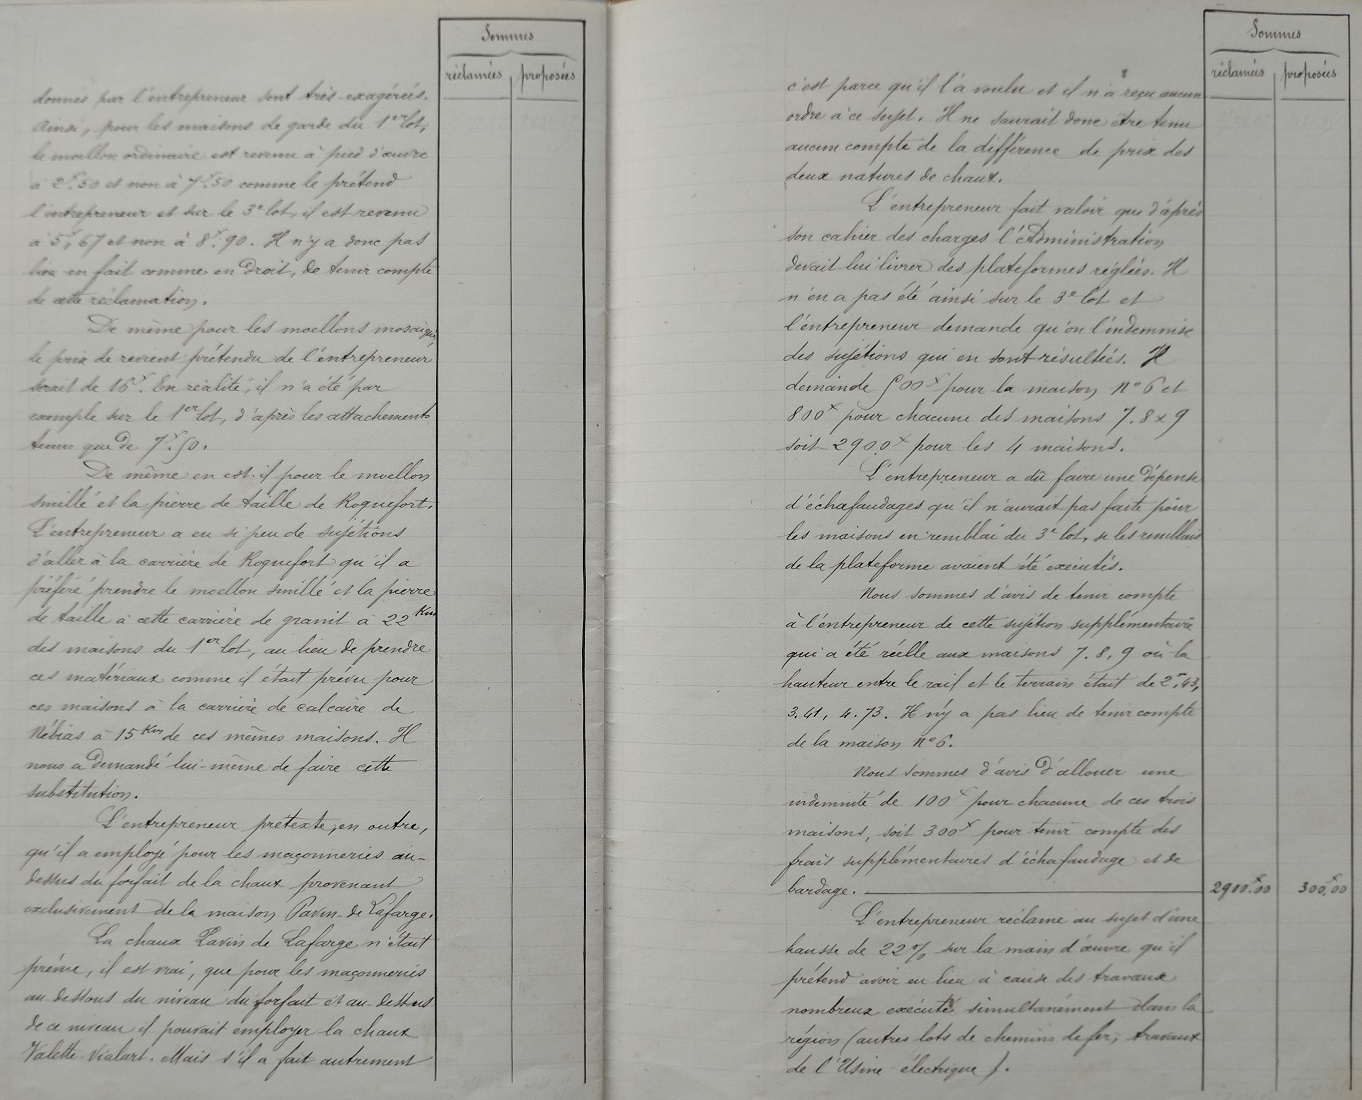 Sommes
réclamées proposées
donnés par l'entrepreneur sont très exagérés.
Ainsi, pour les maisons de garde du 1er lot,
le moellon ordinaire est revenu à pied d'œuvre
à 2f.50 et non à 7f.50 comme le prétend
l'entrepreneur et sur le 3e lot, il est revenu
à 5f.67 et non à 8f.90. Il n'y a donc pas
lieu en fait comme en Droit, de tenir compte
de cette réclamation.
De même pour les moellons mosaïqués,
le prix de revient prétendu de l'entrepreneur
serait de 16f. En réalité, il n'a été par
exemple sur le 1er lot, d'après les attachements
tenus que de 7f.50.
De même en est-il pour le moellon
smillé et la pierre de taille de Roquefort.
L'entrepreneur a eu si peu de sujétions
d'aller à la carrière de Roquefort qu'il a
préféré prendre le moellon smillé et la pierre
de taille à cette carrière de granit à 22 Km
des maisons du 1er lot, au lieu de prendre
ces matériaux comme il était prévu pour
ces maisons à la carrière de calcaire de
Nébias à 15 Km de ces mêmes maisons. Il
nous a demandé lui-même de faire cette
substitution.
L'entrepreneur prétexte, en outre,
qu'il a employé pour les maçonneries au-
dessus du forfait de la chaux provenant
exclusivement de la maison Pavin de Lafarge.
La chaux Pavin de Lafarge n'était
prévue, il est vrai, que pour les maçonneries
au-dessous du niveau du forfait et au-dessus
de ce niveau il pouvait employer la chaux
Valette-Vialart. Mais s'il a fait autrement
Sommes
réclamées proposées
c'est parce qu'il l'a voulu et il n'a reçu aucun
ordre à ce sujet. Il ne saurait donc être tenu
aucun compte de la différence de prix des
deux natures de chaux.
L'entrepreneur fait valoir que d'après
son cahier des charges l'Administration
devait lui livrer des plateformes réglées. Il
n'en a pas été ainsi sur le 3e lot et
l'entrepreneur demande qu'on l'indemnise
des sujétions qui en sont résultées. Il
demande 500f pour la maison n° 6 et
800f pour chacune des maisons 7.8 x 9
soit 2900f pour les 4 maisons.
L'entrepreneur a dû faire une dépense
d'échafaudages qu'il n'aurait pas faite pour
les maisons en remblai du 3e lot, si les remblais
de la plateforme avaient été exécutés.
Nous sommes d'avis de tenir compte
à l'entrepreneur de cette sujétion supplémentaire
qui a été réelle aux maisons 7.8.9 où la
hauteur entre le rail et le terrain était de 2m,43,
3.41, 4.73. Il n'y a pas lieu de tenir compte
de la maison n° 6.
Nous sommes d'avis d'allouer une
indemnité de 100f pour chacune de ces trois
maisons, soit 300f pour tenir compte des
frais supplémentaires d'échafaudage et de
bardage. 2900f.00 300f.00
L'entrepreneur réclame au sujet d'une
hausse de 22% sur la main d'œuvre qu'il
prétend avoir eu lieu à cause des travaux
nombreux exécutés simultanément dans la
région (autres lots de chemins de fer, travaux
de l'Usine électrique).